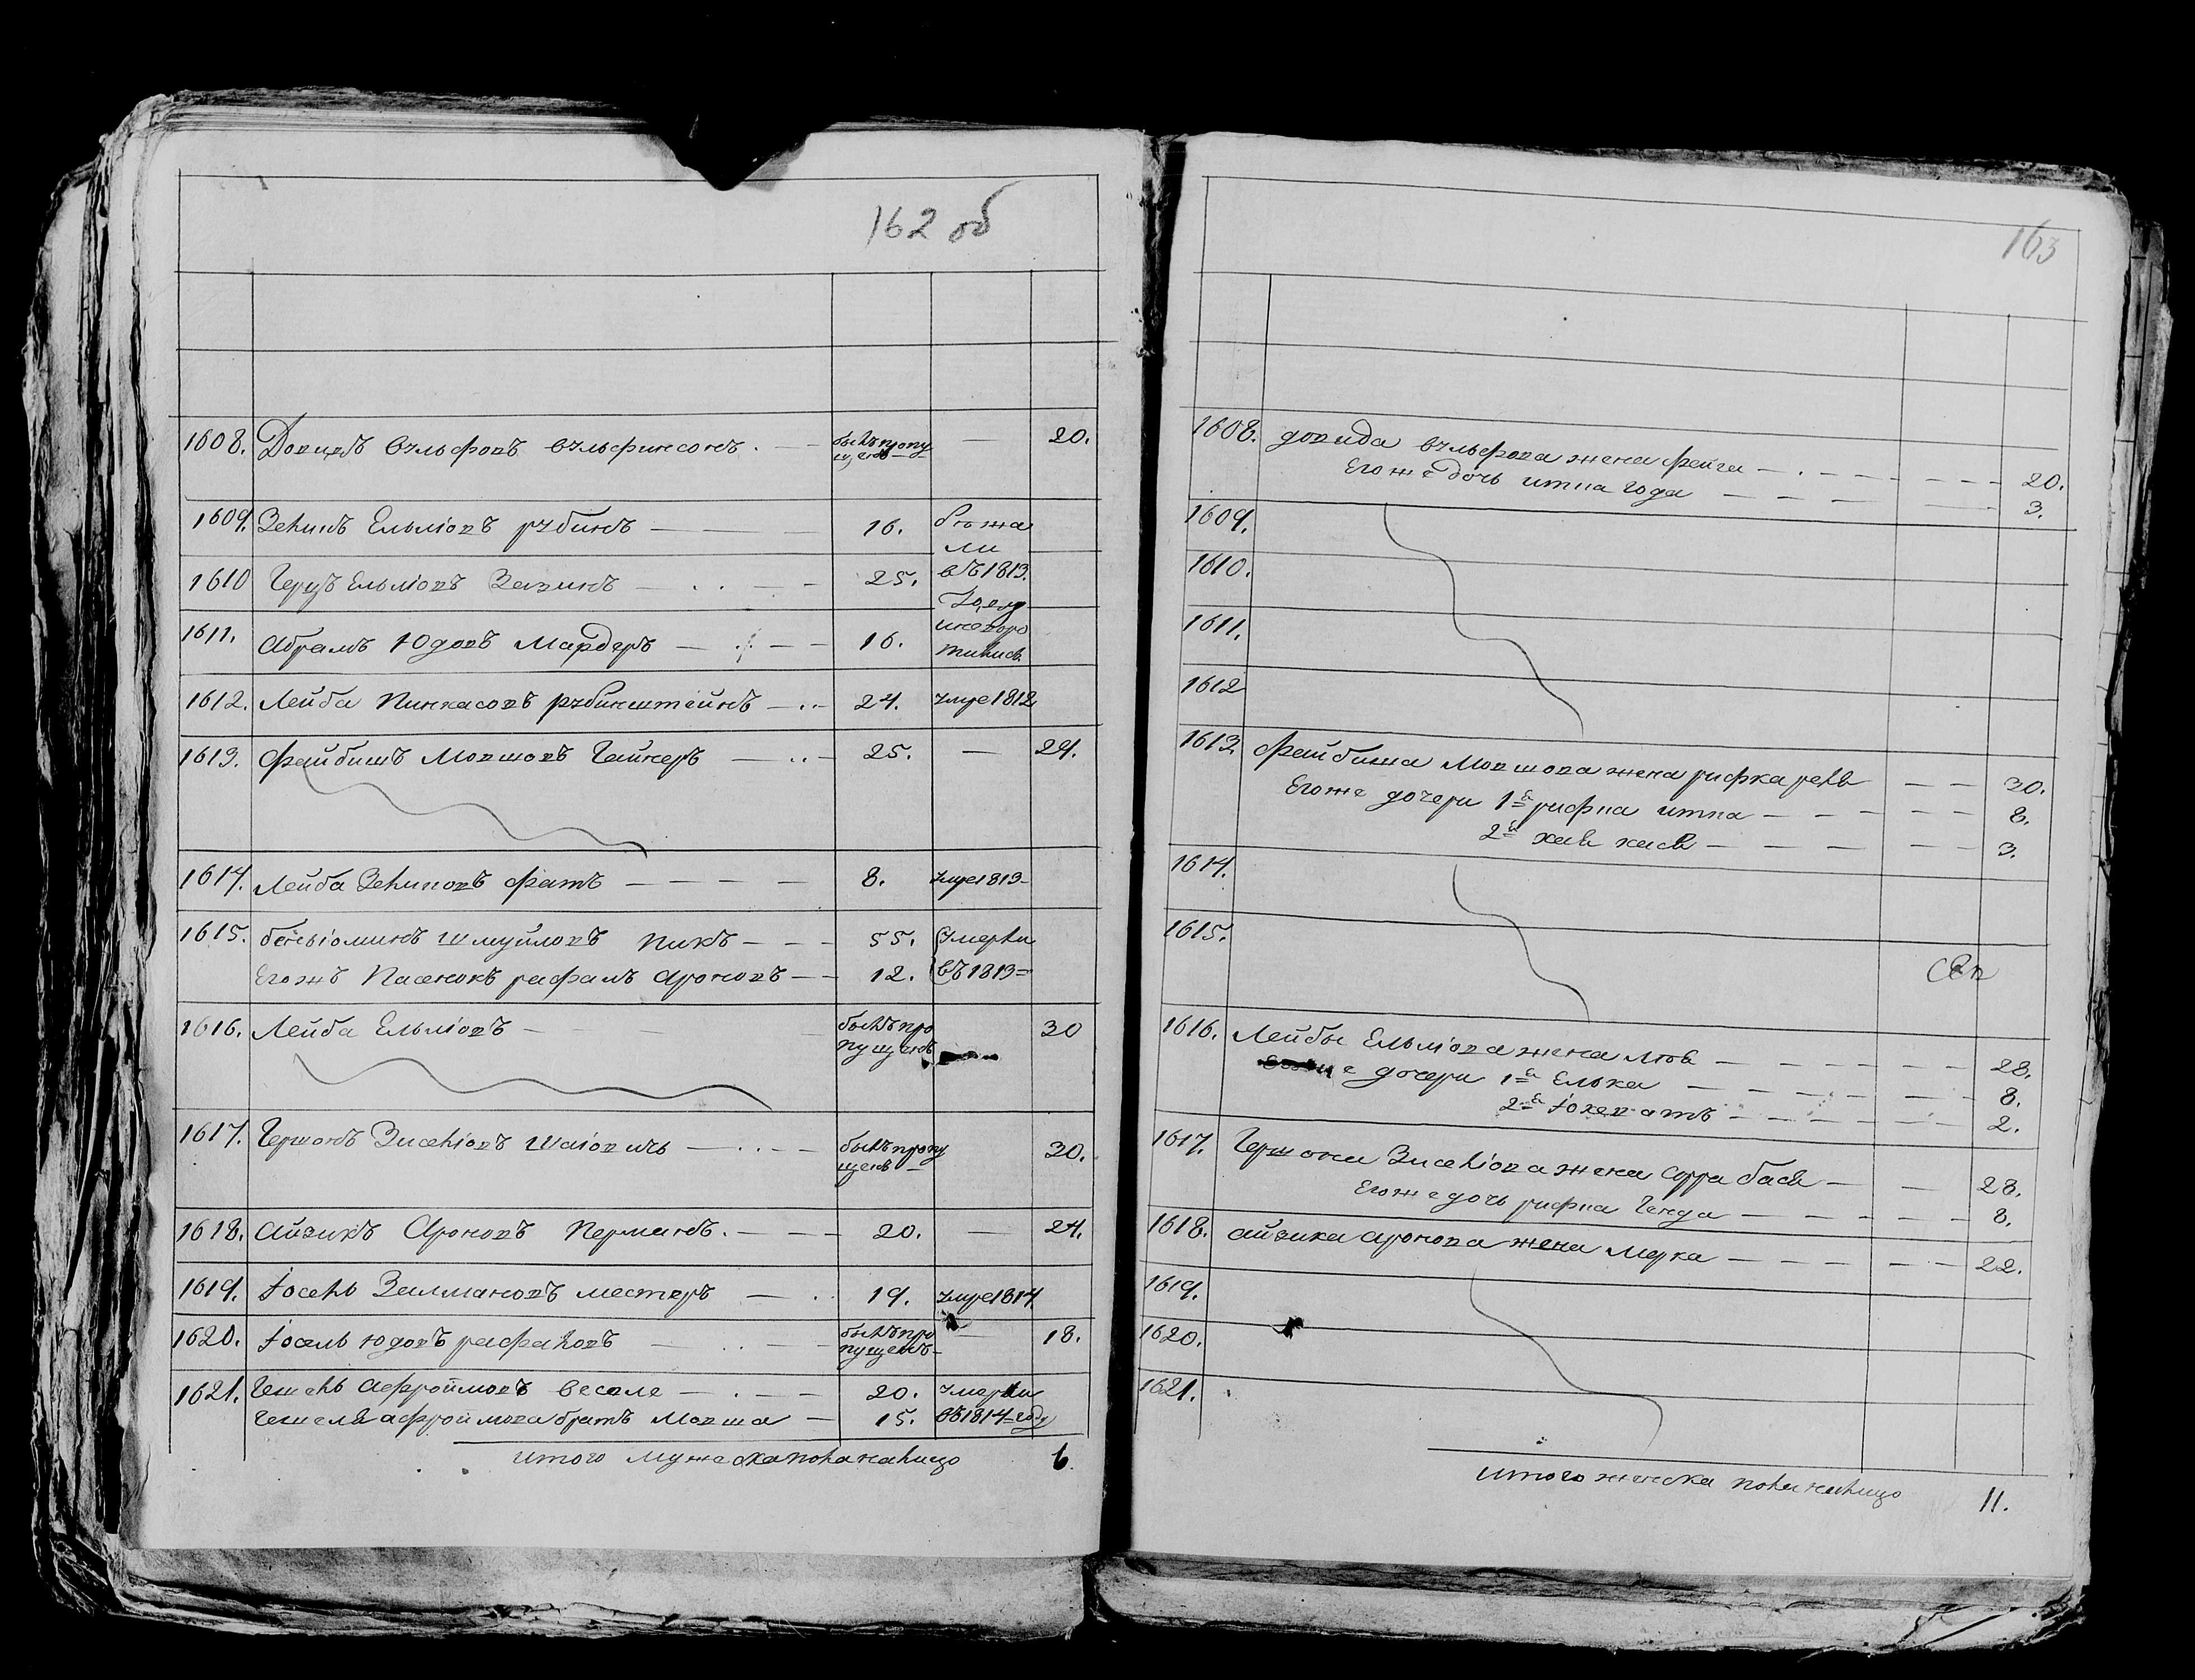 162 об
1608. Довидъ вульфовъ вульфинсонъ. — былъ пропу — 20.
щенъ —
1609. Зелинъ Ельліовъ рубинъ — 16. бѣжа
ли
1610 Герцъ Ельліовъ Зелинъ — 25. въ 1813.
году
1611. Абрамъ Юдовъ Мардеръ — 16.
1612. Лейба Пинкасовъ рубинштейнъ — 24. Умре 1812
1613. Файбишъ Мовшовъ Гайнеръ — 25. — 29.
1614. Лейба Зеликовъ фатъ — 8. умре 1813
1615. беньіоминъ шмуйловъ Пикъ — 55. Умерли
Егожъ Пасенокъ рафалъ Ароновъ — 12. въ 1813 =
1616. Лейба Ельліовъ — былъ про 30
пущенъ
1617. Гершонъ Зиселіовъ шаіовичъ — былъ пропу 30.
щенъ —
1618. Айзикъ Ароновъ Перманъ. — 20. — 24.
1619. іосель Залмановъ местеръ — 19. умре 1814
1620. іосель юдовъ рафаловъ — былъ про — 18.
пущенъ —
1621. Гешель Афроймовъ весоле — 20. умерли
Гешеля афроймова братъ Мовша — 15. въ 1814 = году
итого мужеска пола налицо 6.
163
1608. довида вульфова жена фейга — 20.
Его же дочь итпа года — 3.
1609.
1610.
1611.
1612
1613. Файбиша Мовшова жена рифка рела — 30.
Его же дочери 1я рифка итпа — 8.
2я хая хася — 3.
1614.
1615.
1616. Лейбы Ельліова жена Люба — 28.
е дочери 1я Елька — 8.
2я — 2.
1617. Гершона Зиселіова жена Сорра бася — 28.
Его же дочь рифка Генда — 8.
1618. айзика аронова жена Мерка — 22.
1619.
1620.
1621.
итого женска пола налицо 11.